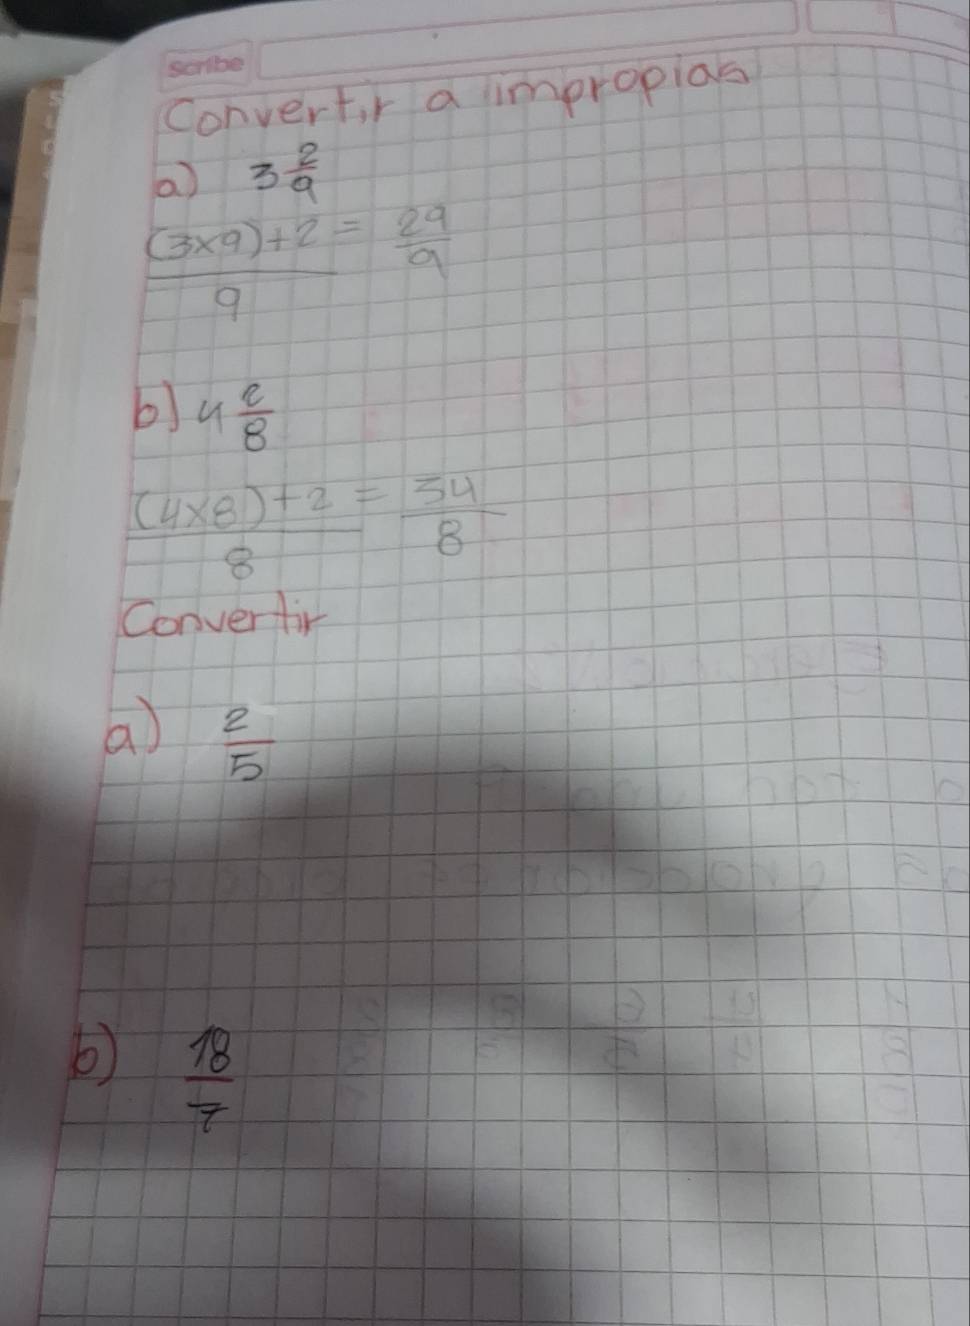 scribe
Convertir a impropias
a) 3 2/9
(3×9)+2/9 = 29/9
b) 4 2/8
(4×8)+2/8 = 34/8
Convertir
a) 2/5
b) 18/7